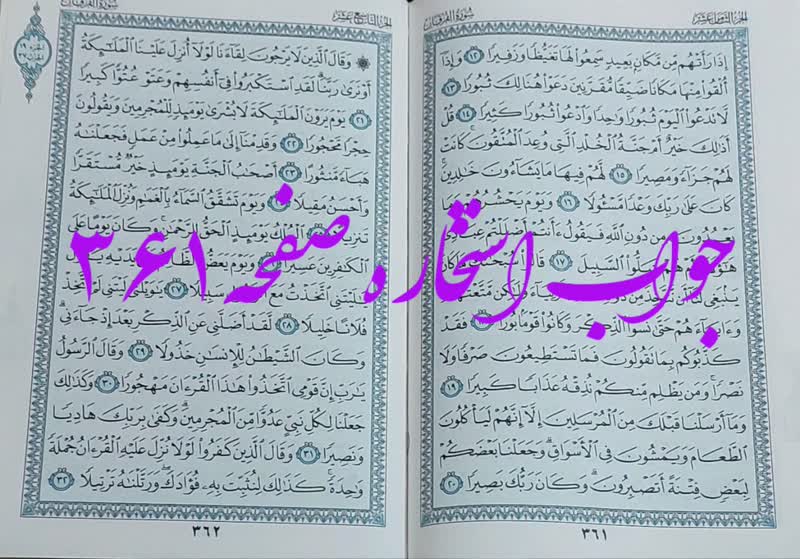 الجزء الثامن عشر
سورة الفرقان
إِذَا رَأَتْهُم مِّن مَّكَانٍ بَعِيدٍ سَمِعُوا لَهَا تَغَيُّظًا وَزَفِيرًا ١٢ وَإِذَا
أُلْقُوا مِنْهَا مَكَانًا ضَيِّقًا مُّقَرَّنِينَ دَعَوْا هُنَالِكَ ثُبُورًا ١٣
لَا تَدْعُوا الْيَوْمَ ثُبُورًا وَاحِدًا وَادْعُوا ثُبُورًا كَثِيرًا ١٤ قُلْ
أَذَٰلِكَ خَيْرٌ أَمْ جَنَّةُ الْخُلْدِ الَّتِي وُعِدَ الْمُتَّقُونَ كَانَتْ
لَهُمْ جَزَاءً وَمَصِيرًا ١٥ لَهُمْ فِيهَا مَا يَشَاءُونَ خَالِدِينَ
كَانَ عَلَىٰ رَبِّكَ وَعْدًا مَسْئُولًا ١٦ وَيَوْمَ يَحْشُرُهُمْ وَمَا
يَعْبُدُونَ مِن دُونِ اللَّهِ فَيَقُولُ ءَأَنتُمْ أَضْلَلْتُمْ عِبَادِي
هَٰؤُلَاءِ أَمْ هُمْ ضَلُّوا السَّبِيلَ ١٧ قَالُوا سُبْحَانَكَ مَا كَانَ
يَنبَغِي لَنَا أَن نَّتَّخِذَ مِن دُونِكَ مِنْ أَوْلِيَاءَ وَلَٰكِن مَّتَّعْتَهُمْ
وَءَابَاءَهُمْ حَتَّىٰ نَسُوا الذِّكْرَ وَكَانُوا قَوْمًا بُورًا ١٨ فَقَدْ
كَذَّبُوكُم بِمَا تَقُولُونَ فَمَا تَسْتَطِيعُونَ صَرْفًا وَلَا
نَصْرًا وَمَن يَظْلِم مِّنكُمْ نُذِقْهُ عَذَابًا كَبِيرًا ١٩
وَمَا أَرْسَلْنَا قَبْلَكَ مِنَ الْمُرْسَلِينَ إِلَّا إِنَّهُمْ لَيَأْكُلُونَ
الطَّعَامَ وَيَمْشُونَ فِي الْأَسْوَاقِ وَجَعَلْنَا بَعْضَكُمْ
لِبَعْضٍ فِتْنَةً أَتَصْبِرُونَ وَكَانَ رَبُّكَ بَصِيرًا ٢٠
٣٦١
الجزء التاسع عشر
سورة الفرقان
الجزء ١٩
الحزب ٣٧
وَقَالَ الَّذِينَ لَا يَرْجُونَ لِقَاءَنَا لَوْلَا أُنزِلَ عَلَيْنَا الْمَلَائِكَةُ
أَوْ نَرَىٰ رَبَّنَا لَقَدِ اسْتَكْبَرُوا فِي أَنفُسِهِمْ وَعَتَوْ عُتُوًّا كَبِيرًا
٢١ يَوْمَ يَرَوْنَ الْمَلَائِكَةَ لَا بُشْرَىٰ يَوْمَئِذٍ لِّلْمُجْرِمِينَ وَيَقُولُونَ
حِجْرًا مَّحْجُورًا ٢٢ وَقَدِمْنَا إِلَىٰ مَا عَمِلُوا مِنْ عَمَلٍ فَجَعَلْنَاهُ
هَبَاءً مَّنثُورًا ٢٣ أَصْحَابُ الْجَنَّةِ يَوْمَئِذٍ خَيْرٌ مُّسْتَقَرًّا
وَأَحْسَنُ مَقِيلًا ٢٤ وَيَوْمَ تَشَقَّقُ السَّمَاءُ بِالْغَمَامِ وَنُزِّلَ الْمَلَائِكَةُ
تَنزِيلًا ٢٥ الْمُلْكُ يَوْمَئِذٍ الْحَقُّ لِلرَّحْمَٰنِ وَكَانَ يَوْمًا عَلَى
الْكَافِرِينَ عَسِيرًا ٢٦ وَيَوْمَ يَعَضُّ الظَّالِمُ عَلَىٰ يَدَيْهِ يَقُولُ
يَا لَيْتَنِي اتَّخَذْتُ مَعَ الرَّسُولِ سَبِيلًا ٢٧ يَا وَيْلَتَىٰ لَيْتَنِي لَمْ أَتَّخِذْ
فُلَانًا خَلِيلًا ٢٨ لَّقَدْ أَضَلَّنِي عَنِ الذِّكْرِ بَعْدَ إِذْ جَاءَنِي
وَكَانَ الشَّيْطَانُ لِلْإِنسَانِ خَذُولًا ٢٩ وَقَالَ الرَّسُولُ
يَا رَبِّ إِنَّ قَوْمِي اتَّخَذُوا هَٰذَا الْقُرْءَانَ مَهْجُورًا ٣٠ وَكَذَٰلِكَ
جَعَلْنَا لِكُلِّ نَبِيٍّ عَدُوًّا مِّنَ الْمُجْرِمِينَ وَكَفَىٰ بِرَبِّكَ هَادِيًا
وَنَصِيرًا ٣١ وَقَالَ الَّذِينَ كَفَرُوا لَوْلَا نُزِّلَ عَلَيْهِ الْقُرْءَانُ جُمْلَةً
وَاحِدَةً كَذَٰلِكَ لِنُثَبِّتَ بِهِ فُؤَادَكَ وَرَتَّلْنَاهُ تَرْتِيلًا ٣٢
٣٦٢
جواب استخاره صفحه ۳۶۱